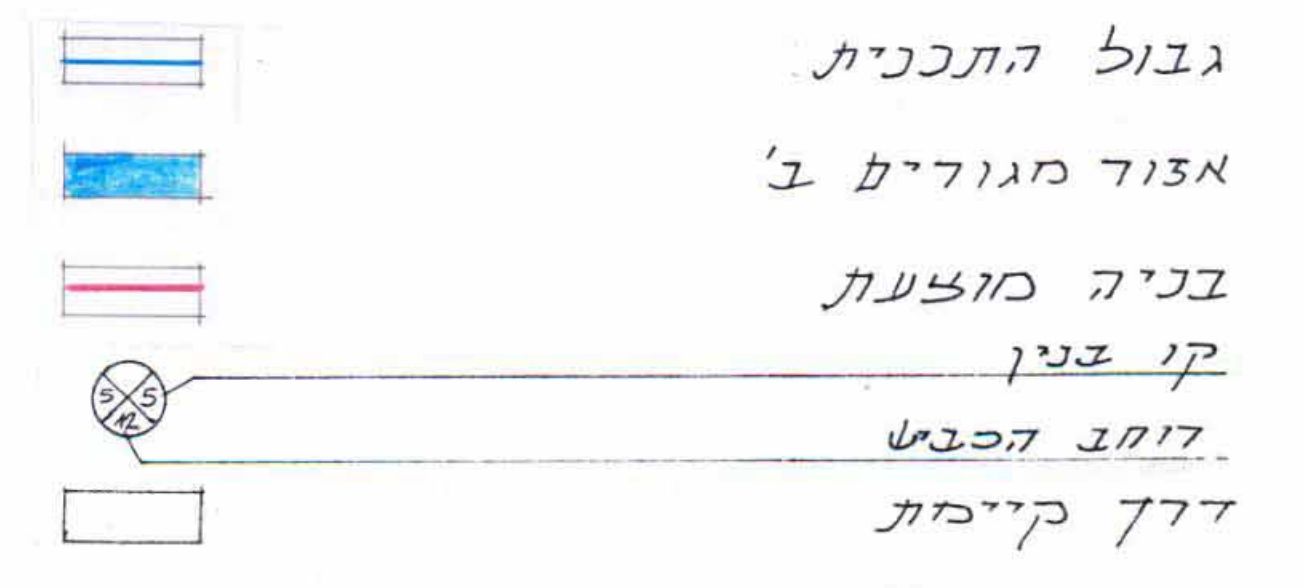 גבול התכנית
אזור מגורים ב'
בניה מוצעת
קו בנין
5 5
12
רוחב הכביש
דרך קיימת